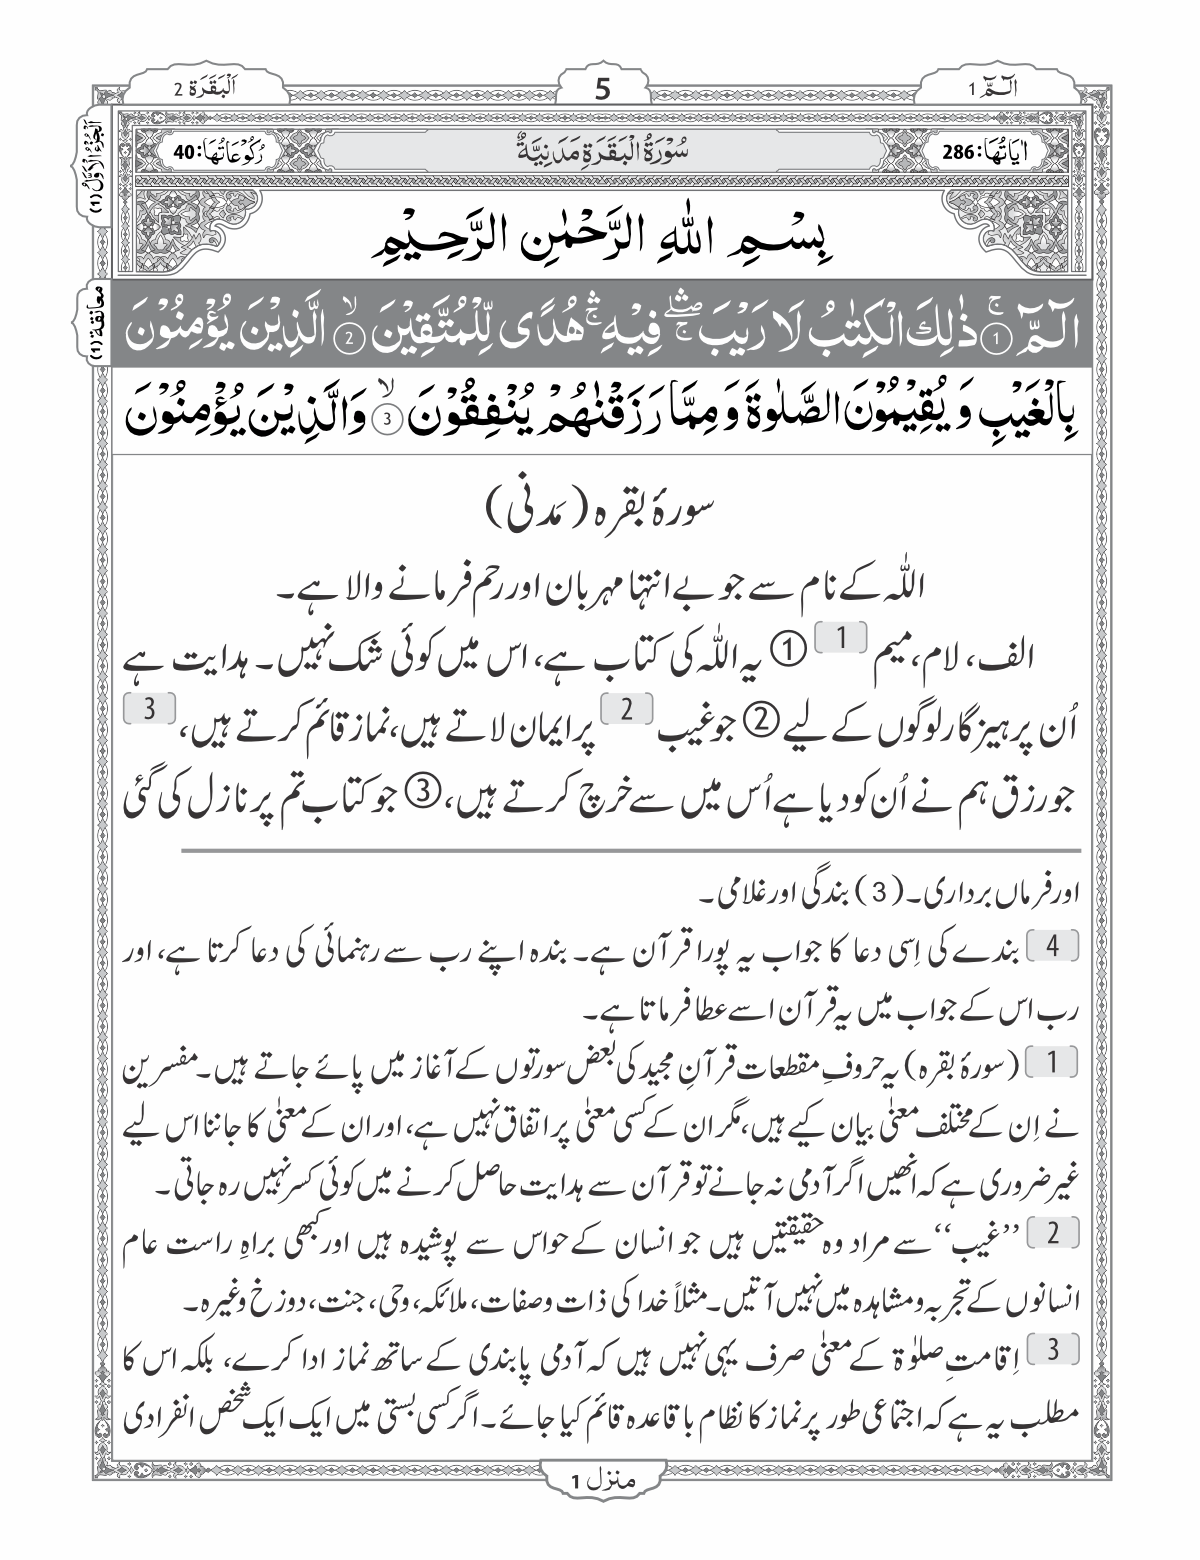 الٓمّٓ 1
5
اَلْبَقَرَة 2
اٰيَاتُهَا: 286
سُوْرَةُ الْبَقَرَةِ مَدَنِيَّةٌ
رُكُوْعَاتُهَا: 40
اَلْجُزْءُ الْاَوَّلُ (1)
بِسْمِ اللّٰهِ الرَّحْمٰنِ الرَّحِيْمِ
معانقة (1)
الٓمّٓ ۚ ① ذٰلِكَ الْكِتٰبُ لَا رَيْبَ ۛۖۚ فِيْهِ ۛۚ هُدًى لِّلْمُتَّقِيْنَ ۙ ② الَّذِيْنَ يُؤْمِنُوْنَ
بِالْغَيْبِ وَ يُقِيْمُوْنَ الصَّلٰوةَ وَ مِمَّا رَزَقْنٰهُمْ يُنْفِقُوْنَ ۙ ③ وَالَّذِيْنَ يُؤْمِنُوْنَ
سورۂ بقرہ (مَدنی)
اللّٰہ کے نام سے جو بے انتہا مہربان اور رحم فرمانے والا ہے۔
الف، لام، میم [1] ① یہ اللّٰہ کی کتاب ہے، اس میں کوئی شک نہیں۔ ہدایت ہے
اُن پرہیزگار لوگوں کے لیے ② جو غیب [2] پر ایمان لاتے ہیں، نماز قائم کرتے ہیں، [3]
جو رزق ہم نے اُن کو دیا ہے اُس میں سے خرچ کرتے ہیں، ③ جو کتاب تم پر نازل کی گئی
اور فرماں برداری۔ (3) بندگی اور غلامی۔
[4] بندے کی اِسی دعا کا جواب یہ پورا قرآن ہے۔ بندہ اپنے رب سے رہنمائی کی دعا کرتا ہے، اور
رب اس کے جواب میں یہ قرآن اسے عطا فرماتا ہے۔
[1] (سورۂ بقرہ) یہ حروفِ مقطعات قرآنِ مجید کی بعض سورتوں کے آغاز میں پائے جاتے ہیں۔ مفسرین
نے اِن کے مختلف معنیٰ بیان کیے ہیں، مگر ان کے کسی معنیٰ پر اتفاق نہیں ہے، اور ان کے معنیٰ کا جاننا اس لیے
غیر ضروری ہے کہ انھیں اگر آدمی نہ جانے تو قرآن سے ہدایت حاصل کرنے میں کوئی کسر نہیں رہ جاتی۔
[2] ’’غیب‘‘ سے مراد وہ حقیقتیں ہیں جو انسان کے حواس سے پوشیدہ ہیں اور کبھی براہِ راست عام
انسانوں کے تجربہ و مشاہدہ میں نہیں آتیں۔ مثلاً خدا کی ذات وصفات، ملائکہ، وحی، جنت، دوزخ وغیرہ۔
[3] اِقامتِ صلوٰۃ کے معنیٰ صرف یہی نہیں ہیں کہ آدمی پابندی کے ساتھ نماز ادا کرے، بلکہ اس کا
مطلب یہ ہے کہ اجتماعی طور پر نماز کا نظام باقاعدہ قائم کیا جائے۔ اگر کسی بستی میں ایک ایک شخص انفرادی
منزل 1